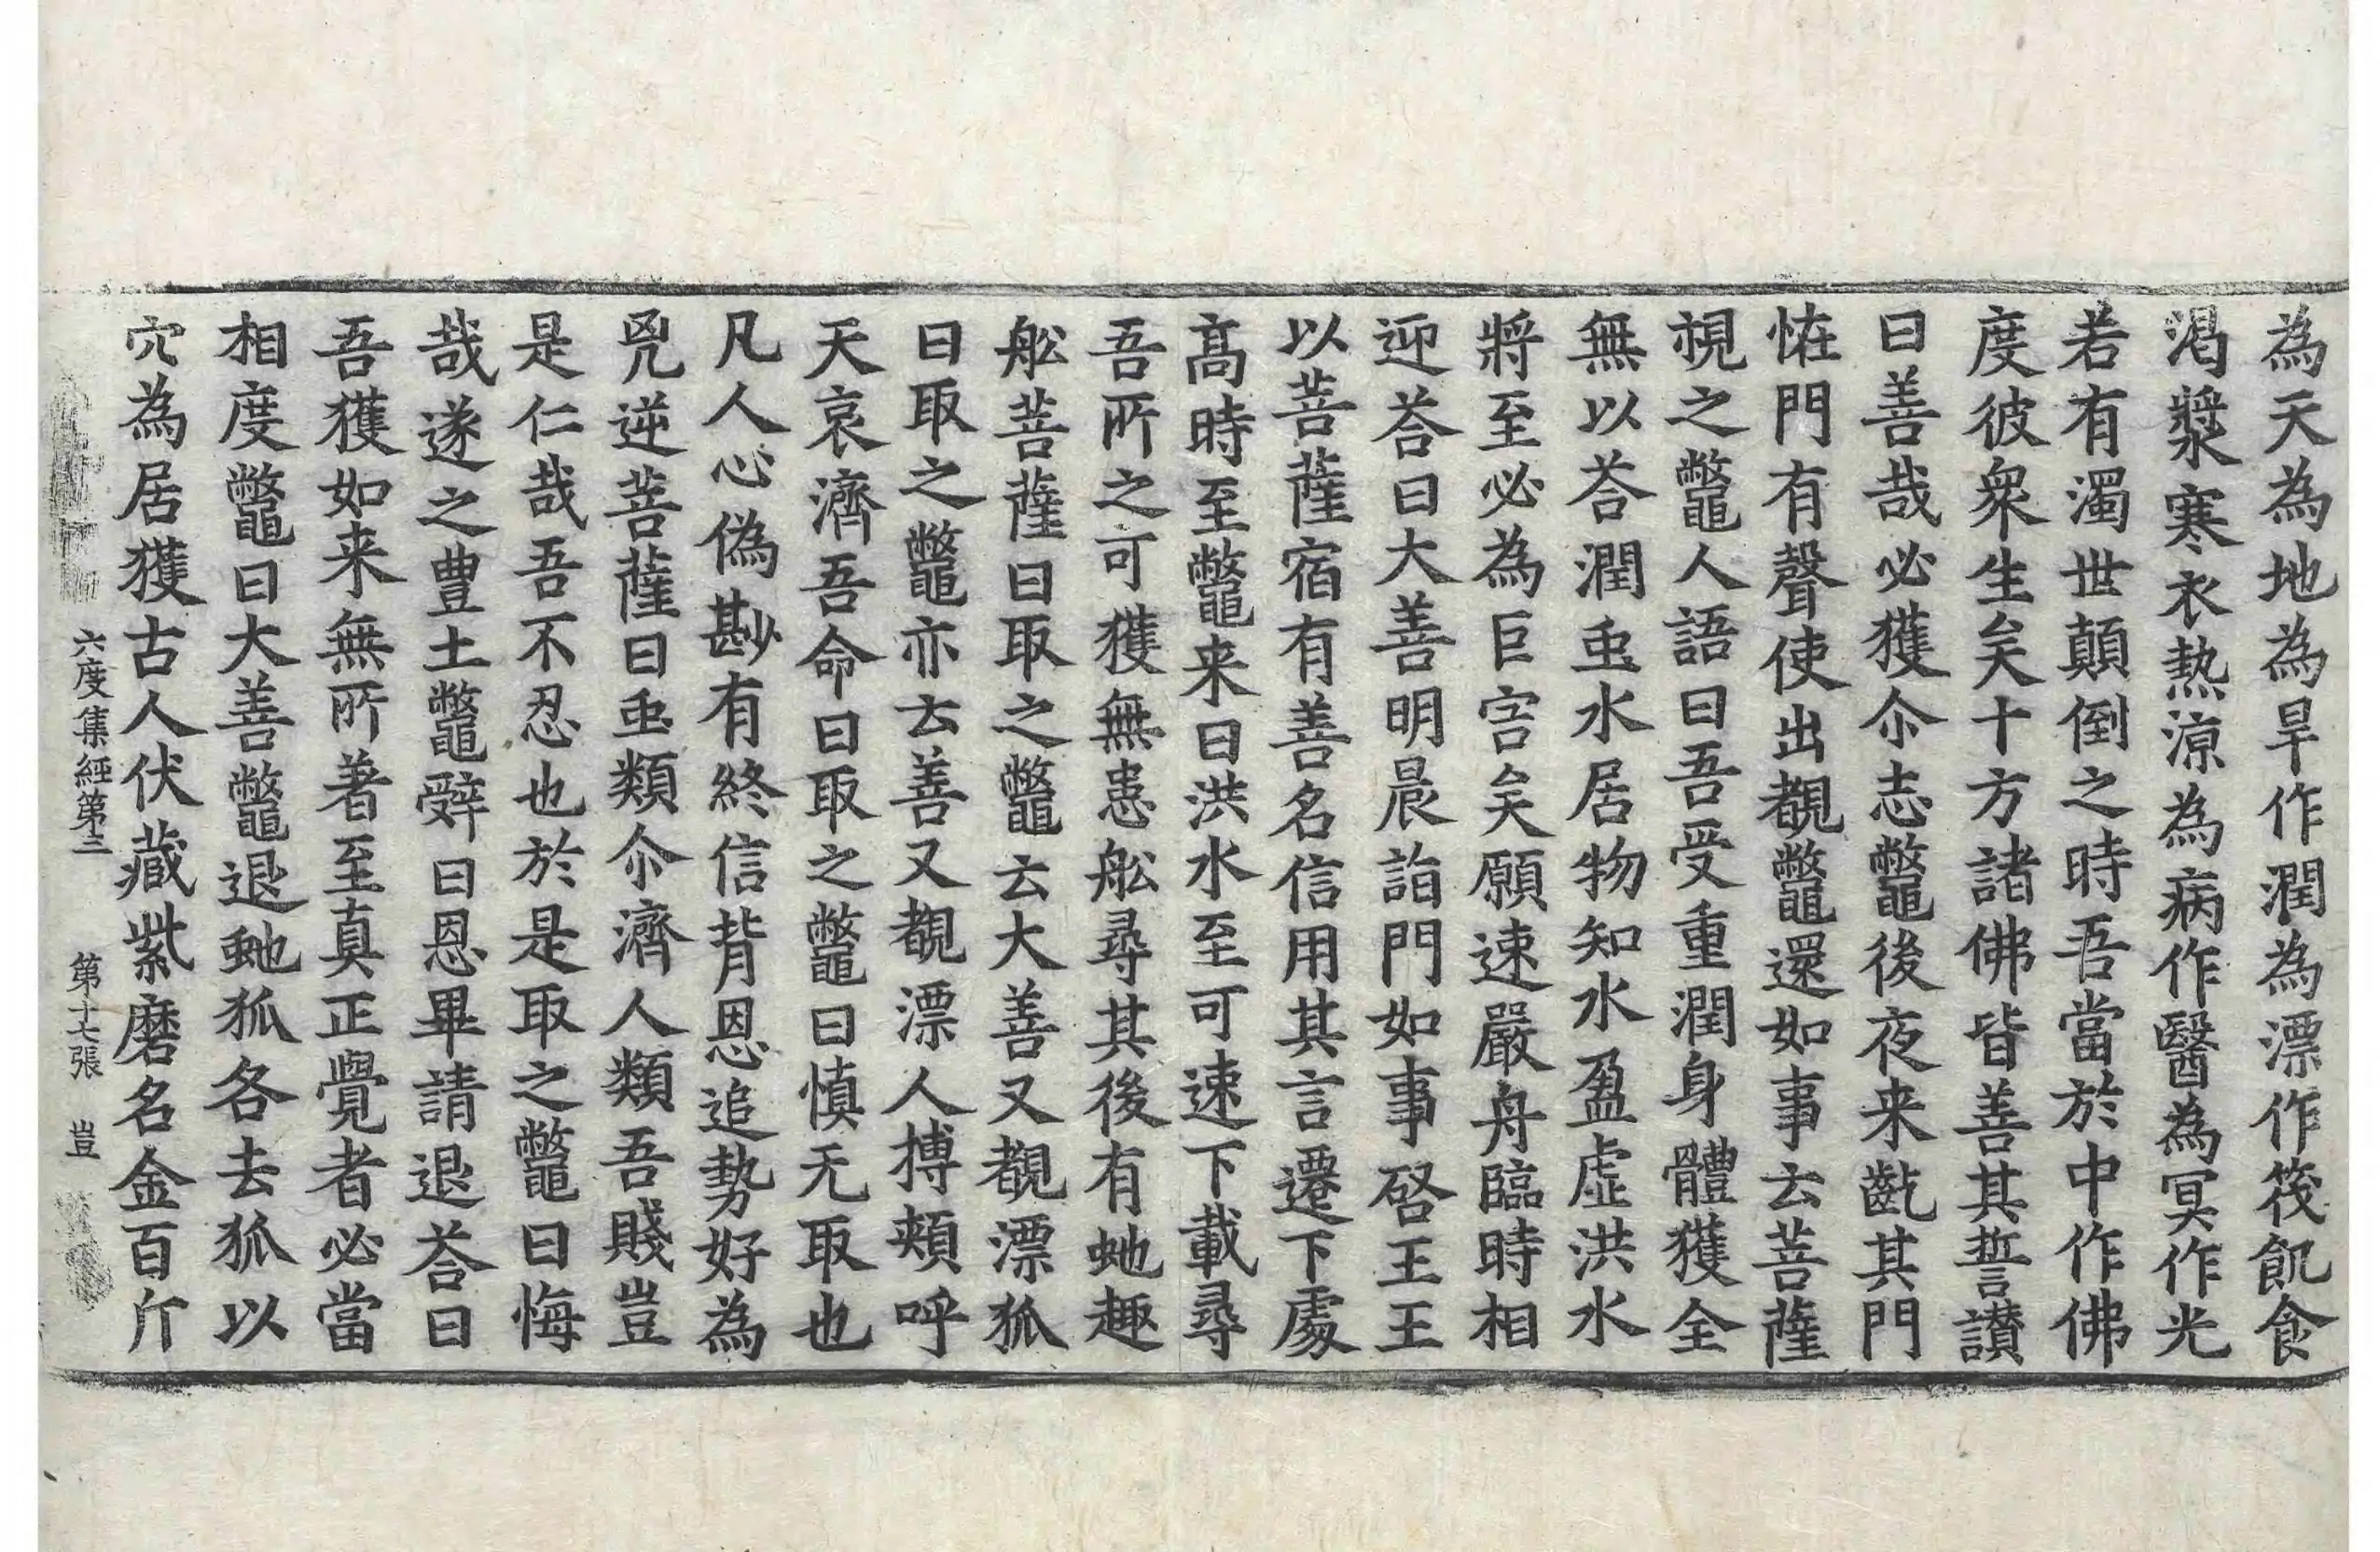 為天為地為旱作潤為漂作筏飢食
渴漿寒衣熱涼為病作醫為冥作光
若有濁世顛倒之時吾當於中作佛
度彼衆生矣十方諸佛皆善其誓讃
曰善哉必獲尒志鼈後夜来齕其門
恠門有聲使出覩鼈還如事云菩薩
視之鼈人語曰吾受重潤身體獲全
無以荅潤䖝水居物知水盈虛洪水
將至必為巨害矣願速嚴舟臨時相
迎荅曰大善明晨詣門如事啓王王
以菩薩宿有善名信用其言遷下處
髙時至鼈来曰洪水至可速下載尋
吾所之可獲無患舩尋其後有虵趣
舩菩薩曰取之鼈云大善又覩漂狐
曰取之鼈亦云善又覩漂人搏頰呼
天哀濟吾命曰取之鼈曰慎无取也
凡人心偽尠有終信背恩追勢好為
兇逆菩薩曰䖝類尒濟人類吾賤豈
是仁哉吾不忍也於是取之鼈曰悔
哉遂之豊土鼈辤曰恩畢請退荅曰
吾獲如来無所著至真正覺者必當
相度鼈曰大善鼈退虵狐各去狐以
穴為居獲古人伏藏紫磨名金百斤
六度集經第三 第十七張 豈